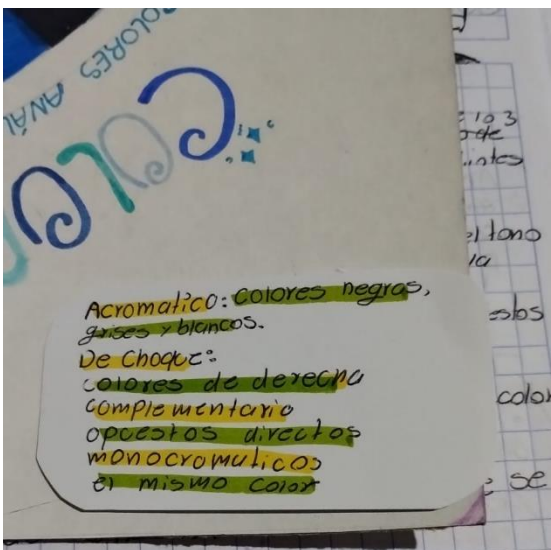 COLORES ANÁL
COLO
Acromatico: colores negras,
grises y blancos.
De choque:
colores de derecha
complementario
opuestos directos
monocromaticos
el mismo color
e 103
de
intes
el tono
la
estos
color
se